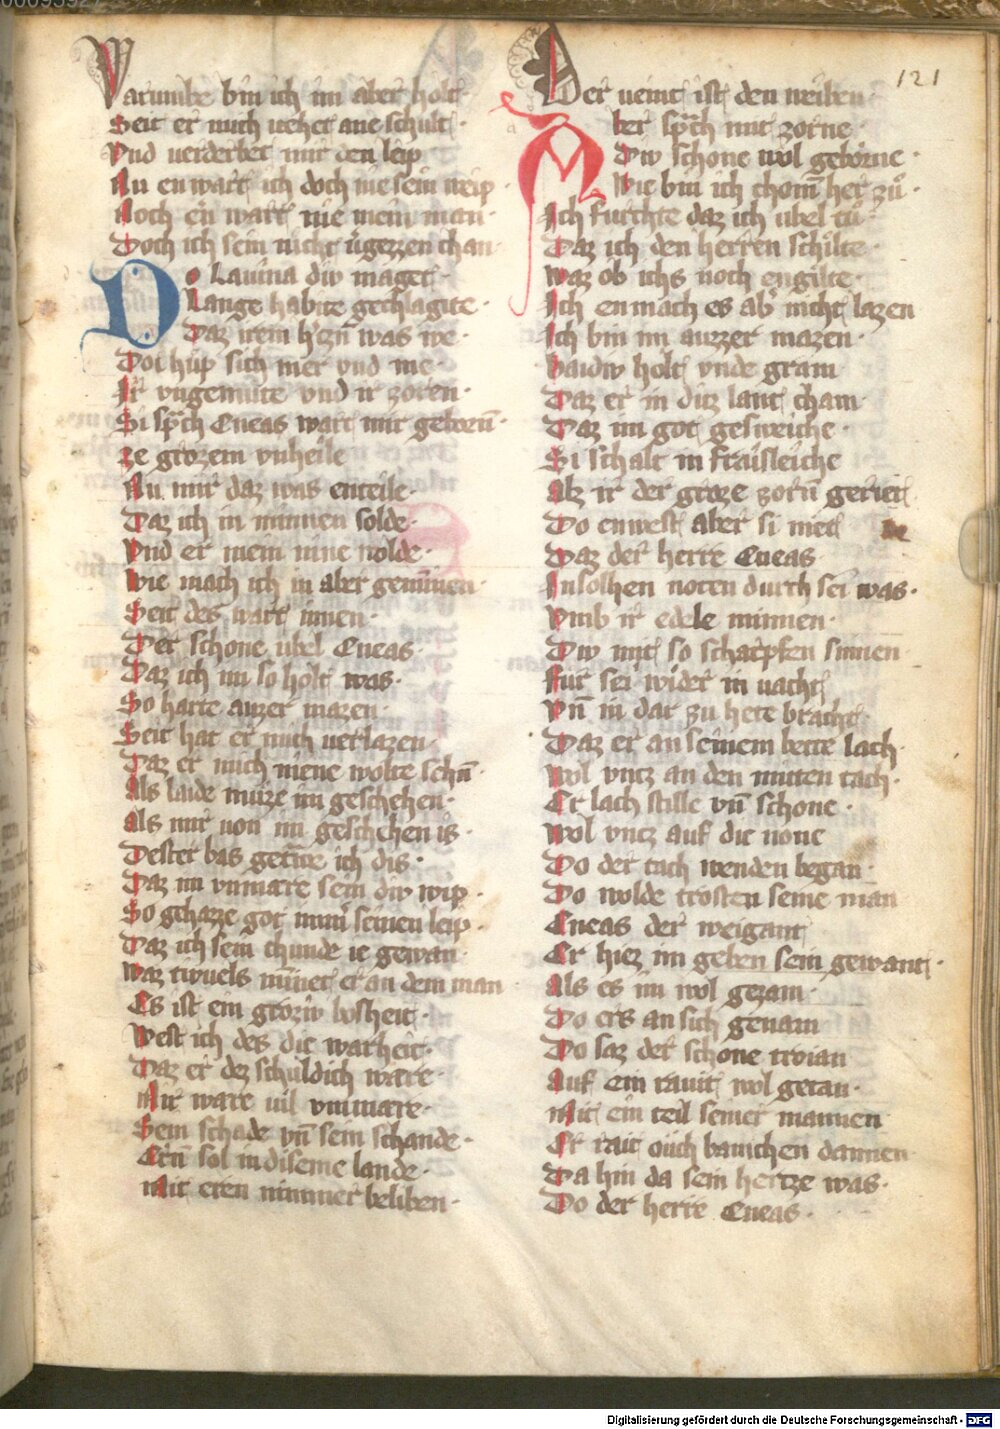 121
Warumbe bin ich im aber holt
Seit er mich vehet ane schult
Vnd verderbet mir den leip
Nu enwart ich doch nie sein weip
Noch er wart nie mein man
Doch ich sein nicht ugezzen chan
Do Lauina diw maget
Lange habite gechlagite
Daz irem h'czn was we
Doi hup sich mer vnd me
Ir vngemute vnd ir zoren
Si sprach Eneas wart mir geborn
ze grozem vnheile
Nu mir daz was enteile
Daz ich in minnen solde
Vnd er mein nine wolde
Wie mach ich in aber geminnen
Seit des wart innen
Der schone vbel Eneas
Daz ich im so holt was
So harte auzer mazen
Seit hat er mich verlazen
Daz er mich niene wolte sehn
Als laide muze im geschehen
Als mir von im geschehen is
Dester bas getruwe ich dis
Daz im vnmare sein diw wip
So gehazze got mim seinen leip
Daz ich sein chunde ie gewan
Waz tiwuels minnet er an dem man
Es ist ein groziv bosheit
West ich des die warheit
Daz er dez schuldich ware
Mir ware vil vnmare
Sein schade vn sein schande
Ern sol in diseme lande
Mit eren nimmer beliben
Der veint ist den weiben
Aber sprach mit zorne
Diw schone wol geborne
Wie bin ich chom her zu
Ich furchte daz ich vbel tu
Daz ich den herren schilte
Waz ob ichs noch engilte
Ich enmach es ab' nicht lazen
Ich bin im auzzer mazen
Baidiv holt vnde gram
Daz er in ditz lant cham
Daz im got gesweiche
Si schalt in fraisleiche
Alz ir der groze zorn geriet
Do enwest aber si niet
Daz der herre Eneas
In solhen noten durch sei was
Vmb ir edele minnen
Diw mit so scharpfen sinnen
Fur sei wider in vacht
Vn in dar zu hete bracht
Daz er an seinem bette lach
Wol vncz an den mitten tach
Er lach stille vn schone
Wol vncz auf die none
Do der tach wenden began
Do wolde trosten seine man
Eneas der weigant
Er hiez im geben sein gewant
Als es im wol gezam
Do ers an sich genam
Do saz der schone troian
Auf ein ravit wol getan
Mit ein teil seiner mannen
Er rait ouch bainchen dannen
Da hin da sein hertze was
Do der herre Eneas
Digitalisierung gefördert durch die Deutsche Forschungsgemeinschaft - DFG